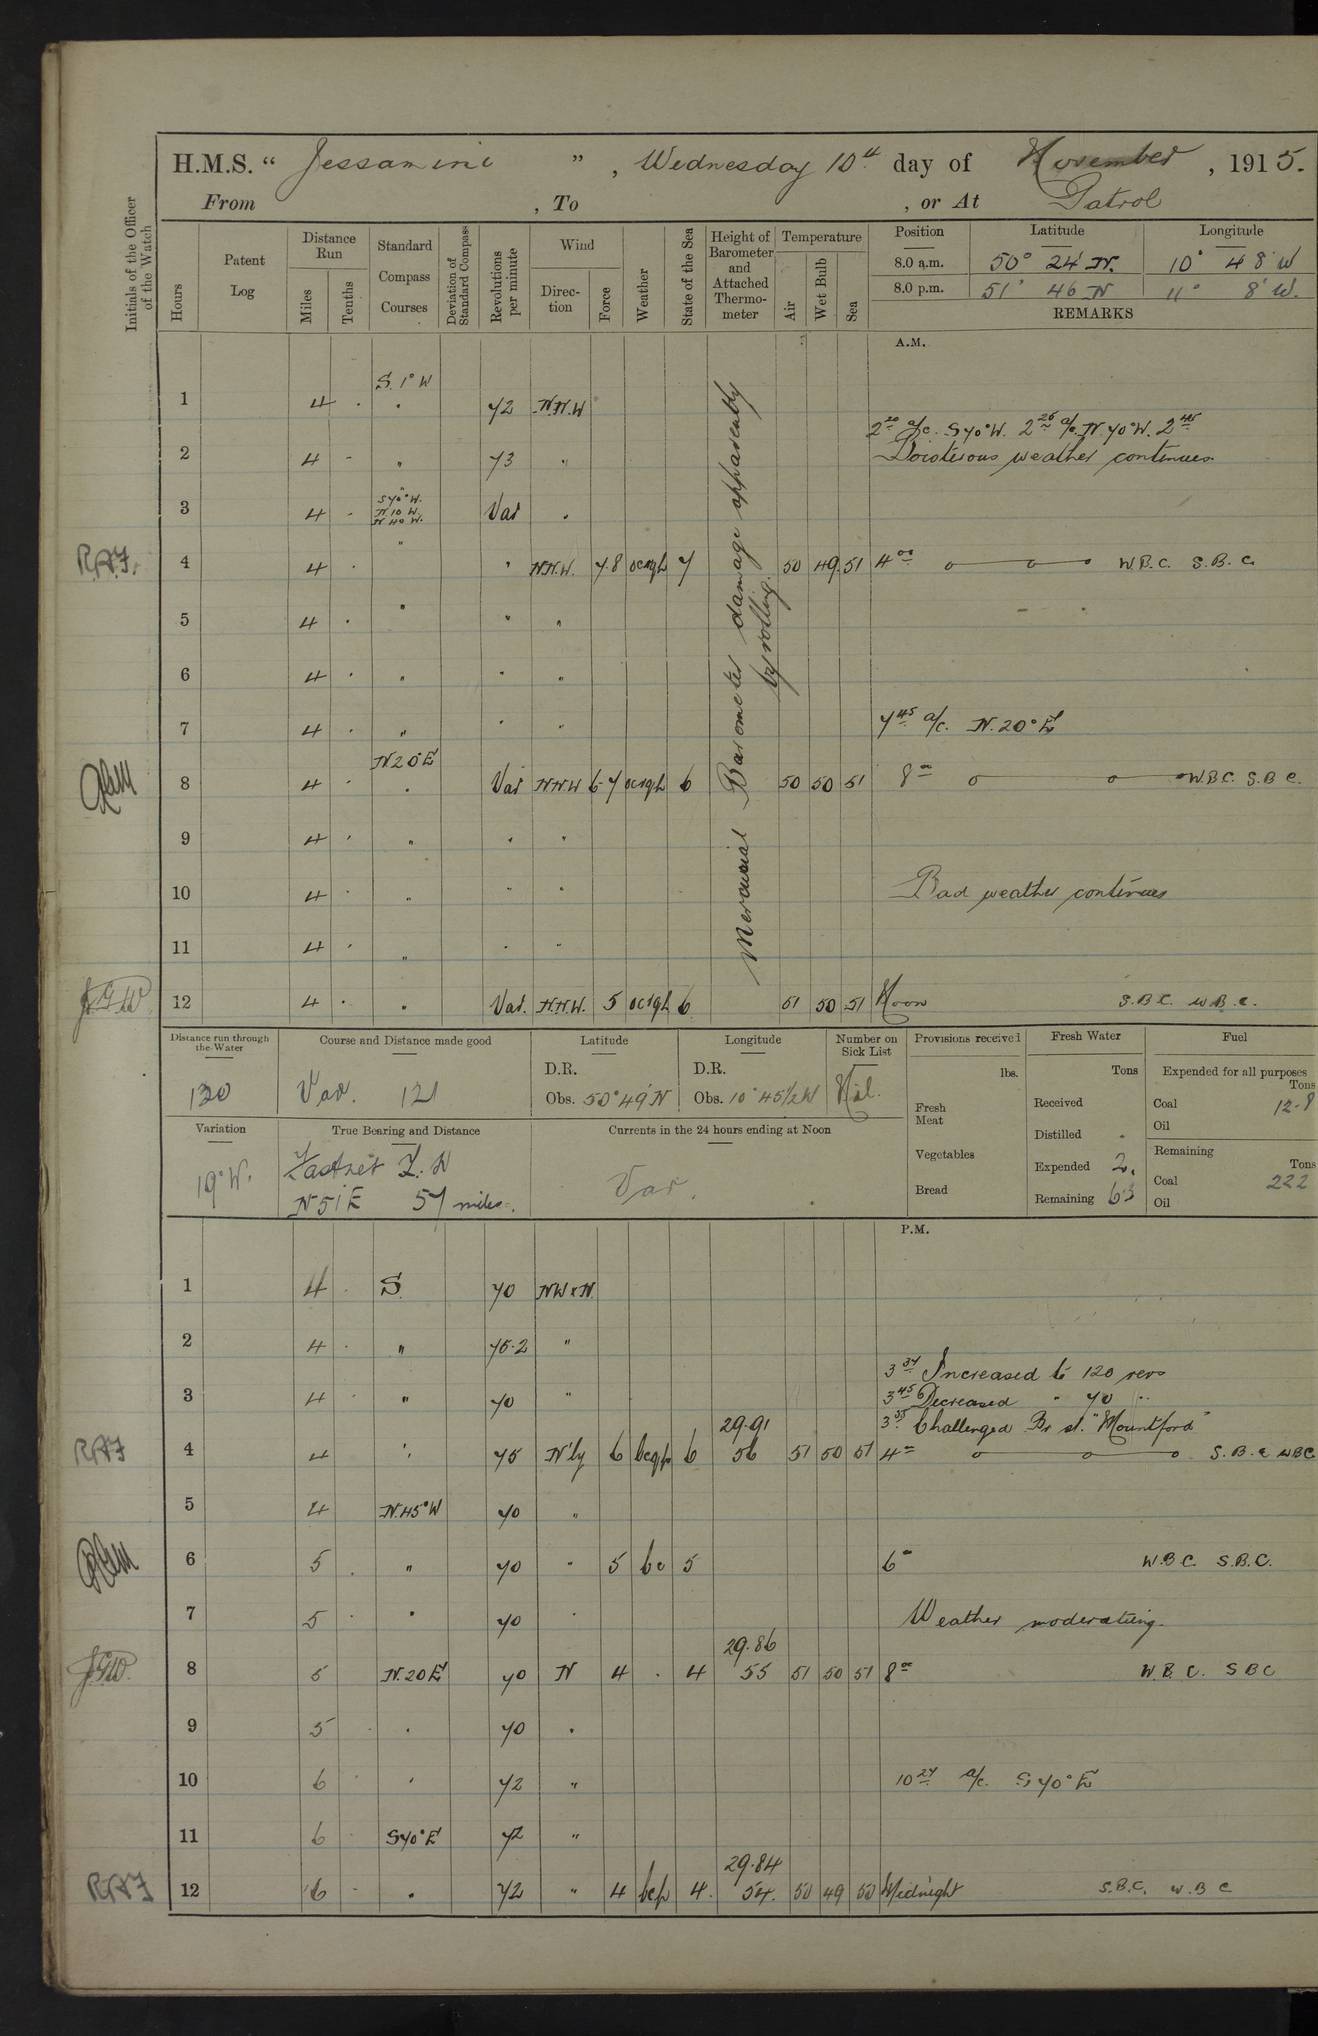 H.M.S. "Jessamine", Wednesday 10th day of November, 1915.
From , To , or At Patrol
Initials of the Officer of the Watch
Hours
Patent Log
Distance Run
Miles
Tenths
Standard Compass Courses
Deviation of Standard Compass
Revolutions per minute
Wind
Direction
Force
Weather
State of the Sea
Height of Barometer and Attached Thermometer
Temperature
Air
Wet Bulb
Sea
Position Latitude Longitude
8.0 a.m. 50° 24' N. 10° 48' W
8.0 p.m. 51° 46 N 11° 8' W.
REMARKS
A.M.
S. 1° W
1 4 . " 72 N.N.W
2 20 a/c. S 70° W. 2 26 a/c. N. 70° W. 2 45
2 4 - " 73 " Boisterous weather continues
" S 70° W. N 10 W. N 40 W.
3 4 . Var "
R.A.F. 4 4 . " " N.N.W. 7.8 ocrqh 7 50 49 51 4 00 W.B.C. S.B.C.
5 4 . " " "
6 4 . " " "
7 4 . " " " 7 45 a/c. N. 20° E
N 20 E
8 4 . " Var N.N.W 6-7 ocrqh 6 50 50 51 8 00 W.B.C. S.B.C.
9 4 . " " "
10 4 . " " " Bad weather continues
11 4 . " " "
12 4 . " Var. N.N.W. 5 ocrqh 6 51 50 51 Noon S.B.C. W.B.C.
Mercurial Barometer damage apparently
by rolling.
Distance run through the Water
120
Course and Distance made good
Var. 121
Latitude
D.R.
Obs. 50° 49' N
Longitude
D.R.
Obs. 10° 45 1/2 W
Number on Sick List
Nil.
Provisions received
lbs.
Fresh Meat
Vegetables
Bread
Fresh Water
Tons
Received
Distilled .
Expended 2.
Remaining 63
Fuel
Expended for all purposes
Tons
Coal 12.8
Oil
Remaining
Tons
Coal 222
Oil
Variation
19° W.
True Bearing and Distance
Fastnet L. H
N 51 E 57 miles.
Currents in the 24 hours ending at Noon
Var.
P.M.
1 4 . S. 70 NW x N.
2 4 . " 75.2 "
3 37 Increased to 120 revs
3 4 . " 70 " 3 45 Decreased " 70 "
29.91 3 35 Challenged Br st. "Mountford"
RAF 4 4 " 75 N'ly 6 bcqp 6 56 51 50 51 4 00 S.B.C WBC
5 4 N. 45° W 70 "
6 5 . " 70 " 5 bc 5 6 00 W.B.C. S.B.C.
7 5 . " 70 " Weather moderating.
29.86
8 5 N. 20 E 70 N 4 . 4 55 51 50 51 8 00 W.B.C. SBC
9 5 . " 70 "
10 6 . " 72 " 10 27 a/c. S 70° E
11 6 . S 70° E 72 "
29.84
RAF 12 6 . " 72 " 4 bcp 4. 54. 50 49 50 Midnight S.B.C. W.B.C